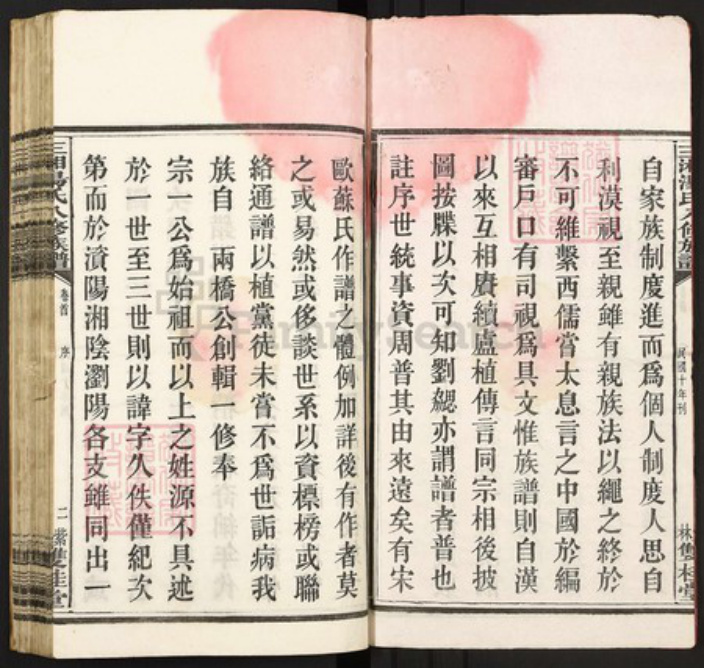 自家族制度進而爲個人制度人思自
利漠視至親雖有親族法以繩之終於
不可維繫西儒嘗太息言之中國於編
審戶口有司視爲具文惟族譜則自漢
以來互相賡續盧植傳言同宗相後披
圖按牒以次可知劉勰亦謂譜者普也
註序世統事資周普其由來遠矣有宋
歐蘇氏作譜之體例加詳後有作者莫
之或易然或侈談世系以資標榜或聯
絡通譜以植黨徒未嘗不爲世詬病我
族自 兩橋公創輯一修奉
宗一公爲始祖而以上之姓源不具述
於一世至三世則以諱字久佚僅紀次
第而於濱陽湘陰瀏陽各支雖同出一
三湘湯氏八修族譜
民國十年刊
林雙桂堂
三湘湯氏八修族譜
卷首
序
二
雙桂堂
FamilySearch